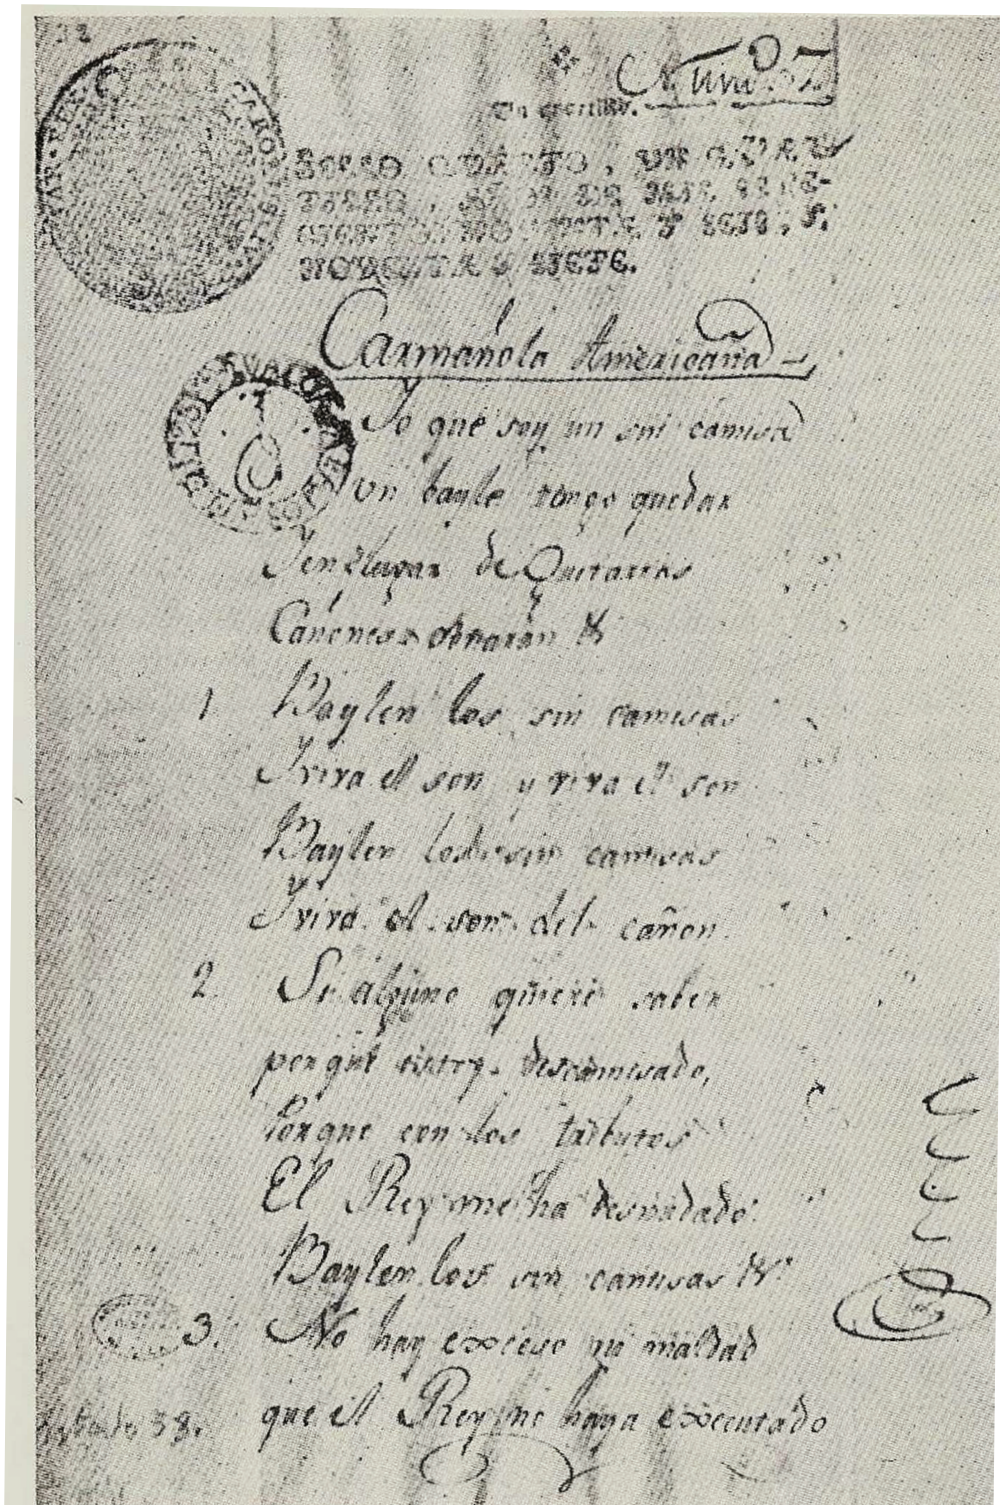 32
Num.º
Un quartillo.
SELLO QVARTO, VN QVAR-
TILLO, AÑOS DE MIL SETE-
CIENTOS NOVENTA Y SEIS, Y
NOVENTA Y SIETE.
Carmañola Americana
Yo que soy un sin camisa
un bayle tengo quedar
Y en lugar de Guitarras
Cañones sonarán &
1 Baylen los sin camisas
Y viva el son y viva el son
Baylen los sin camisas
Y viva el son del cañon.
2. Si alguno quiere saber
porqué estoy descamisado,
Porque con los tributos
El Rey me ha desnudado.
Baylen los sin camisas &
3. No hay exceso ni maldad
que el Rey no haya executado
38.